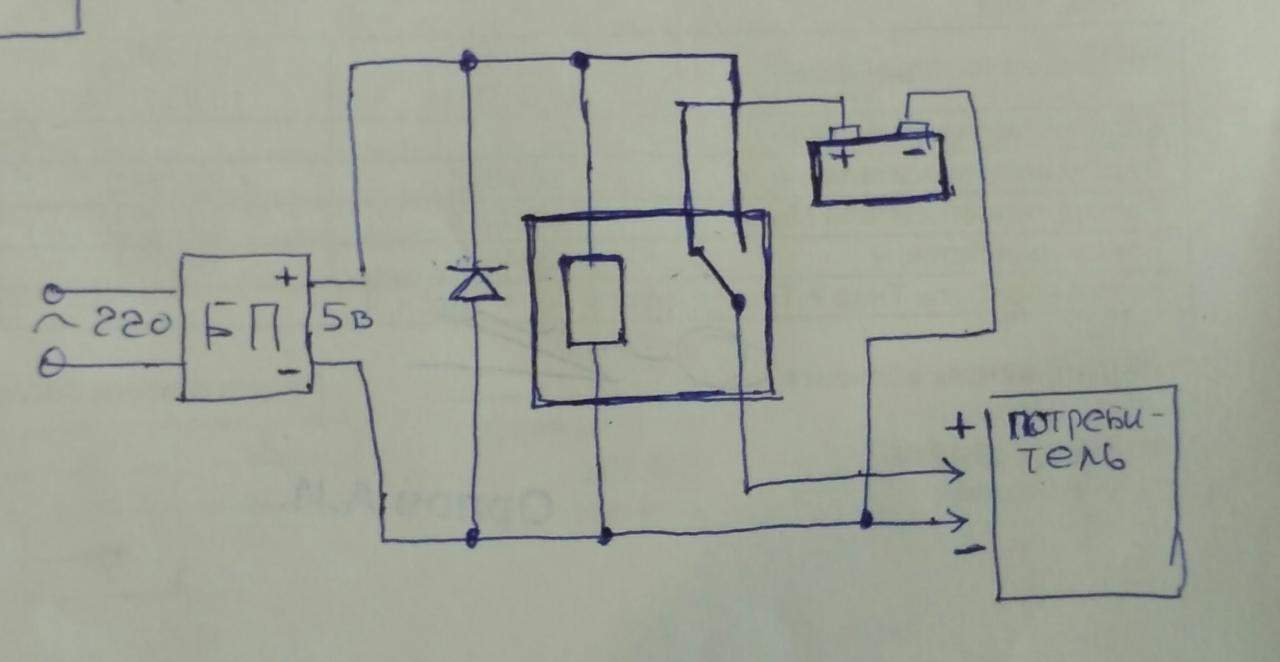 ~ 220
БП
+
-
5В
+ -
+
потреби-
тель
-